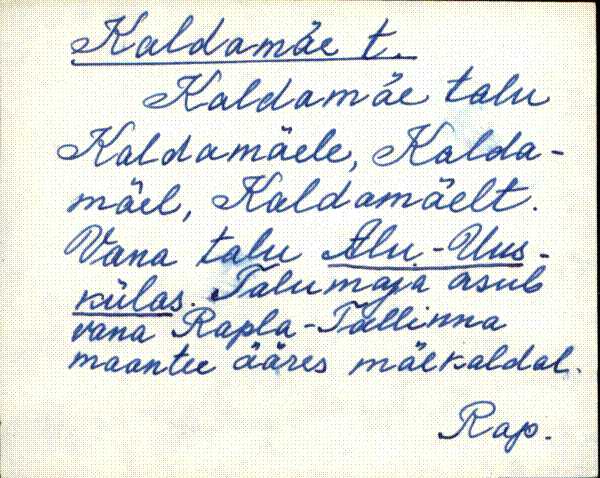 Kaldamäe t.
Kaldamäe talu
Kaldamäele, Kalda-
mäel, Kaldamäelt.
Vana talu Alu-Uus-
külas. Talumaja asub
vana Rapla-Tallinna
maantee ääres mäekaldal.
Rap.